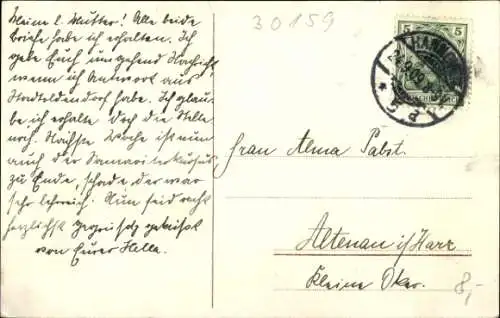 Meine l. Mutter! Alle beide
Briefe habe ich erhalten. Ich
gebe Euch umgehend Nachricht
wenn ich Antwort aus
Stadtoldendorf habe. Ich glau-
be ich erhalte doch die Stelle
noch. Nächste Woche ist nun
auch der Samariterkursus
zu Ende, schade der war
sehr lehrreich. Nun seid recht
herzlichst gegrüßt geküsst
von Eurer Hella.
30159
5 5
HANNOVER
24.9.09.8-
* 5
Frau Alma Pabst.
Altenau i/Harz
Kleine Oker.
8,-